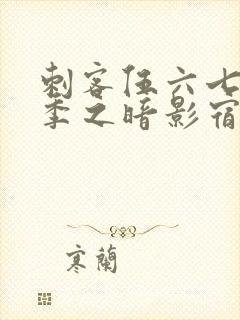 刺客伍六七
季之暗影宿
寒蘭